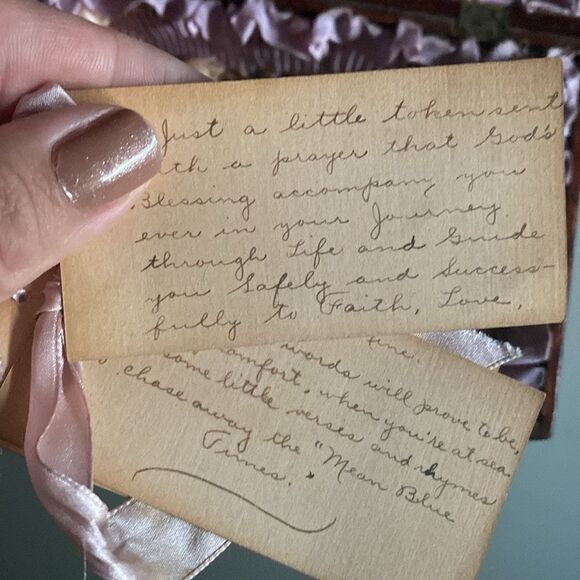 Just a little token sent
ith a prayer that God's
Blessing accompany you
ever in your Journey
through Life and Guide
you Safely and Success-
fully to Faith, Love,
words will prove to be,
comfort, when you're at sea
some little verses and rhymes
chase away the "Mean Blue
Times."